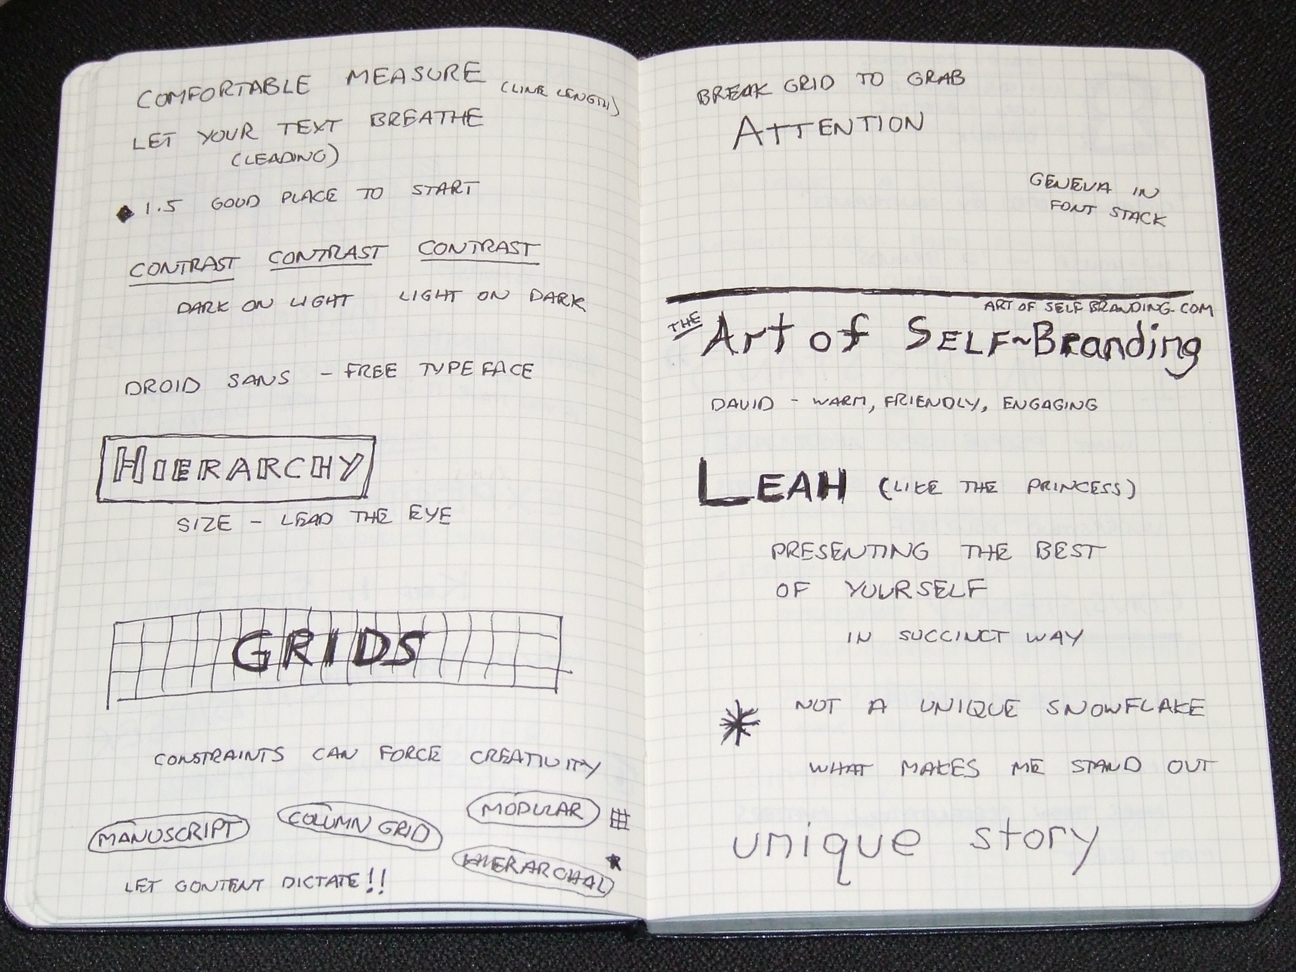 COMFORTABLE MEASURE (LINE LENGTH)
LET YOUR TEXT BREATHE
(LEADING)
1.5 GOOD PLACE TO START
CONTRAST CONTRAST CONTRAST
DARK ON LIGHT LIGHT ON DARK
DROID SANS - FREE TYPEFACE
HIERARCHY
SIZE - LEAD THE EYE
GRIDS
CONSTRAINTS CAN FORCE CREATIVITY
MANUSCRIPT COLUMN GRID MODULAR
HIERARCHAL
LET CONTENT DICTATE!!
BREAK GRID TO GRAB
ATTENTION
GENEVA IN
FONT STACK
ART OF SELF BRANDING.COM
THE Art of SELF~Branding
DAVID - WARM, FRIENDLY, ENGAGING
LEAH (LIKE THE PRINCESS)
PRESENTING THE BEST
OF YOURSELF
IN SUCCINCT WAY
* NOT A UNIQUE SNOWFLAKE
WHAT MAKES ME STAND OUT
unique story